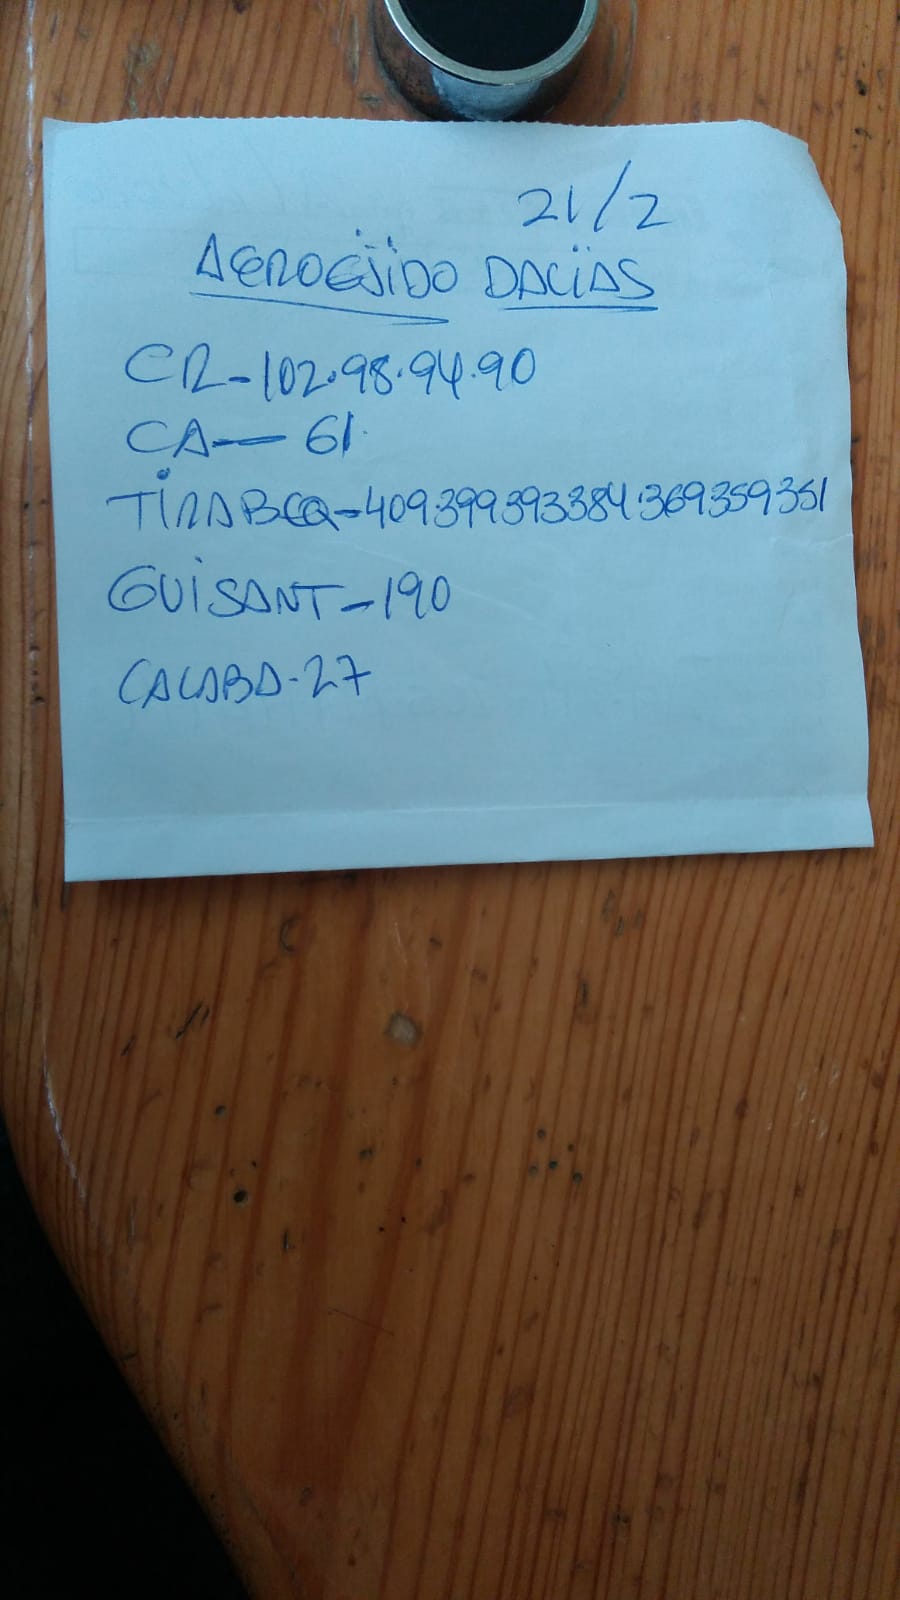 21/2
AGROEJIDO DALÍAS
CR-102.98.94.90
CA-61.
TIRABEQ-409.399393384.369359351
GUISANT-190
CALABA-27